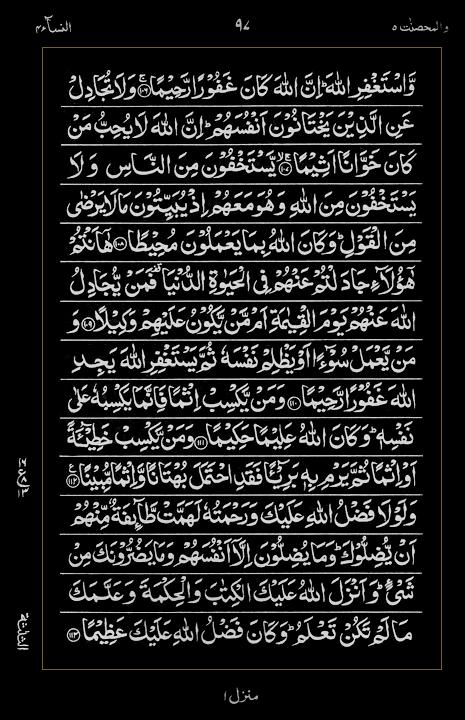 والمحصنٰت ۵ ۹۷ النسآء ۴
وَّاسْتَغْفِرِ اللّٰهَ ؕ اِنَّ اللّٰهَ كَانَ غَفُوْرًا رَّحِیْمًا ۚ﴿۱۰۶﴾ وَلَا تُجَادِلْ
عَنِ الَّذِیْنَ یَخْتَانُوْنَ اَنْفُسَهُمْ ؕ اِنَّ اللّٰهَ لَا یُحِبُّ مَنْ
كَانَ خَوَّانًا اَثِیْمًا ۚۙ﴿۱۰۷﴾ یَّسْتَخْفُوْنَ مِنَ النَّاسِ وَلَا
یَسْتَخْفُوْنَ مِنَ اللّٰهِ وَهُوَ مَعَهُمْ اِذْ یُبَیِّتُوْنَ مَا لَا یَرْضٰی
مِنَ الْقَوْلِ ؕ وَكَانَ اللّٰهُ بِمَا یَعْمَلُوْنَ مُحِیْطًا ﴿۱۰۸﴾ هٰۤاَنْتُمْ
هٰۤؤُلَآءِ جَادَلْتُمْ عَنْهُمْ فِی الْحَیٰوةِ الدُّنْیَا ۫ فَمَنْ یُّجَادِلُ
اللّٰهَ عَنْهُمْ یَوْمَ الْقِیٰمَةِ اَمْ مَّنْ یَّكُوْنُ عَلَیْهِمْ وَكِیْلًا ﴿۱۰۹﴾ وَ
مَنْ یَّعْمَلْ سُوْٓءًا اَوْ یَظْلِمْ نَفْسَهٗ ثُمَّ یَسْتَغْفِرِ اللّٰهَ یَجِدِ
اللّٰهَ غَفُوْرًا رَّحِیْمًا ﴿۱۱۰﴾ وَمَنْ یَّكْسِبْ اِثْمًا فَاِنَّمَا یَكْسِبُهٗ عَلٰی
نَفْسِهٖ ؕ وَكَانَ اللّٰهُ عَلِیْمًا حَكِیْمًا ﴿۱۱۱﴾ وَمَنْ یَّكْسِبْ خَطِیْٓئَةً
اَوْ اِثْمًا ثُمَّ یَرْمِ بِهٖ بَرِیْٓـًٔا فَقَدِ احْتَمَلَ بُهْتَانًا وَّاِثْمًا مُّبِیْنًا ﴿۱۱۲﴾
وَلَوْلَا فَضْلُ اللّٰهِ عَلَیْكَ وَرَحْمَتُهٗ لَهَمَّتْ طَّآئِفَةٌ مِّنْهُمْ
اَنْ یُّضِلُّوْكَ ؕ وَمَا یُضِلُّوْنَ اِلَّاۤ اَنْفُسَهُمْ وَمَا یَضُرُّوْنَكَ مِنْ
شَیْءٍ ؕ وَاَنْزَلَ اللّٰهُ عَلَیْكَ الْكِتٰبَ وَالْحِكْمَةَ وَعَلَّمَكَ
مَا لَمْ تَكُنْ تَعْلَمُ ؕ وَكَانَ فَضْلُ اللّٰهِ عَلَیْكَ عَظِیْمًا ﴿۱۱۳﴾
منزل ۱